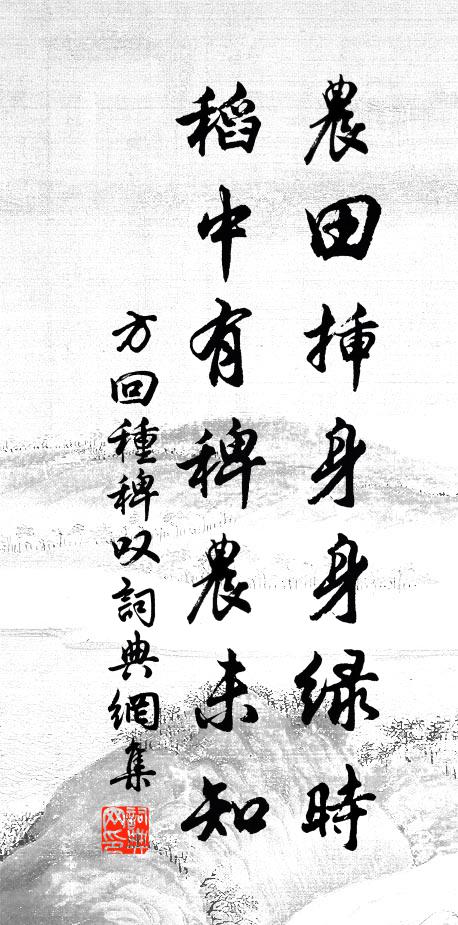 農田揷身身綠時
稻中有稗農未知
方回種稗叹詞典網集